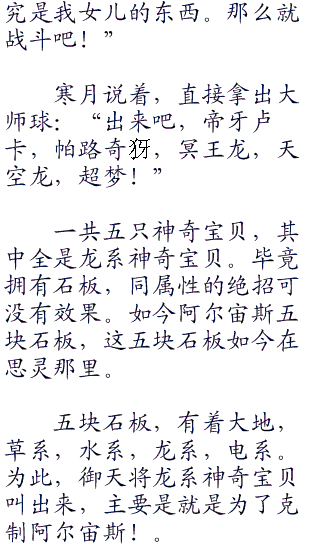 究是我女儿的东西。那么就
战斗吧！”
寒月说着，直接拿出大
师球：“出来吧，帝牙卢
卡，帕路奇犽，冥王龙，天
空龙，超梦！”
一共五只神奇宝贝，其
中全是龙系神奇宝贝。毕竟
拥有石板，同属性的绝招可
没有效果。如今阿尔宙斯五
块石板，这五块石板如今在
思灵那里。
五块石板，有着大地，
草系，水系，龙系，电系。
为此，御天将龙系神奇宝贝
叫出来，主要是就是为了克
制阿尔宙斯！。